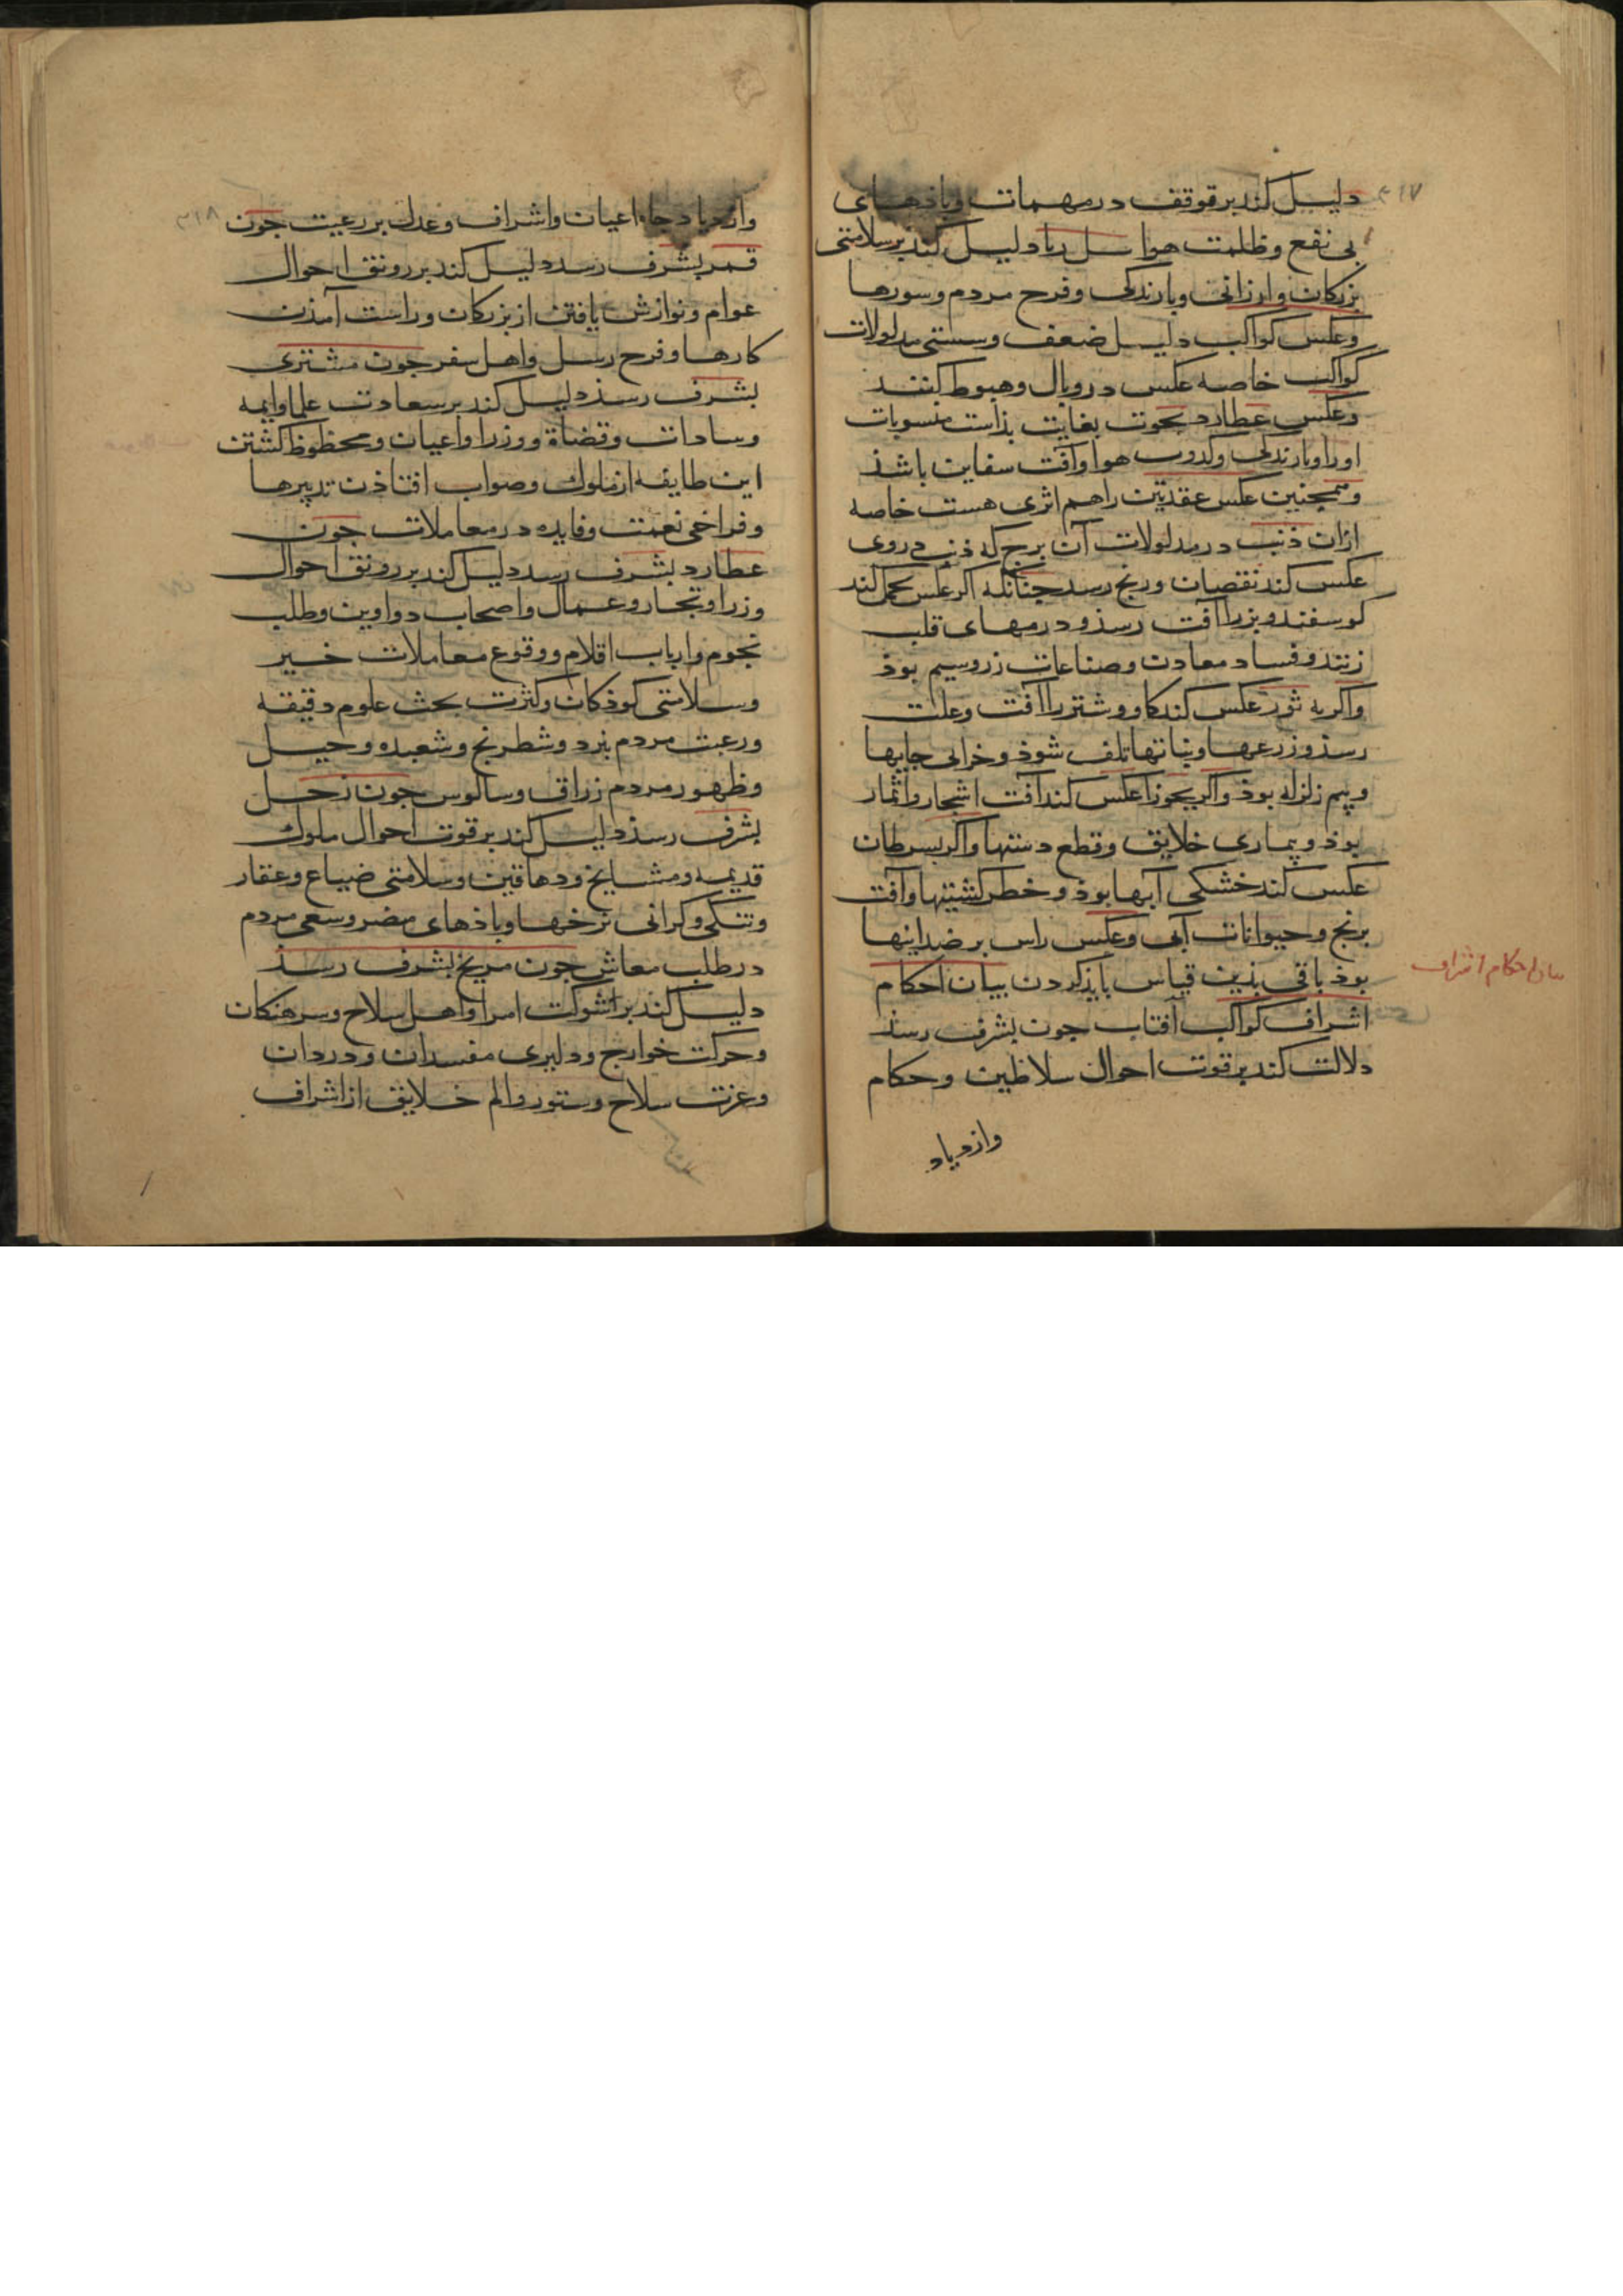 ۳۱۷
دلیل کند بر توقف در مهمات و باذهای
بی نفع و ظلمت هوا دلیل کند بر سلامتی
بزرکان و ارزانی و بارندکی و فرح مردم و سورها
و عکس کواکب دلیل ضعف و سستی مدلولات
کواکب خاصه عکس در وبال و هبوط کنند
و عکس عطارد بحوت بغایت بذاست منسوبات
اورا و بارندکی و کدورت هوا و آفت سفاین باشذ
و همچنین عکس عقدتین را هم اثری هست خاصه
ازان ذنب در مدلولات آن برج که ذنب در وی
عکس کند نقصان و رنج رسد چنانکه اکر عکس بحمل کند
کوسفند و بز را آفت رسذ و درمهای قلب
زنند و فساد معادن و صناعات زر و سیم بوذ
و اکر به ثور عکس کند کاو و شتر را آفت و علت
رسذ و زرعها و نباتها تلف شوذ و خرابی جایها
و بیم زلزله بوذ و اکر بجوزا عکس کند آفت اشجار و اثمار
بوذ و بیماری خلایق و قطع دستها و اکر بسرطان
عکس کند خشکی آبها بوذ و خطر کشتیها و آفت
برنج و حیوانات آبی و عکس راس بر ضد اینها
بوذ باقی بذین قیاس بایذ کردن بیان احکام
بیان احکام اشراف
اشراف کواکب آفتاب جون بشرف رسذ
دلالت کند بر قوت احوال سلاطین و حکام
وازدیاد
۳۱۸
وازدیاد جاه اعیان و اشراف و عدل بر رعیت جون
قمر بشرف رسد دلیل کند بر رونق احوال
عوام و نوازش یافتن از بزرکان و راست آمذن
کارها و فرح رسل و اهل سفر جون مشتری
بشرف رسذ دلیل کند بر سعادت علما و ایمه
و سادات و قضاة و وزرا و اعیان و محظوظ کشتن
این طایفه از ملوک و صواب افتاذن تدبیرها
و فراخی نعمت و فایده در معاملات جون
عطارد بشرف رسد دلیل کند بر رونق احوال
وزرا و تجار و عمال و اصحاب دواوین و طلب
نجوم و ارباب اقلام و وقوع معاملات خیر
و سلامتی کوذکان و کثرت بحث علوم دقیقه
و رغبت مردم بنرد و شطرنج و شعبده و حیل
و ظهور مردم زراق و سالوس جون زحل
بشرف رسذ دلیل کند بر قوت احوال ملوک
قدیمه و مشایخ و دهاقین و سلامتی ضیاع و عقار
و تنکی و کرانی نرخها و باذهای مضر و سعی مردم
در طلب معاش جون مریخ بشرف رسذ
دلیل کند بر شوکت امرا و اهل سلاح و سرهنکان
و حرکت خوارج و دلیری مفسدان و دزدان
و عزت سلاح و ستور و الم خلایق از اشراف